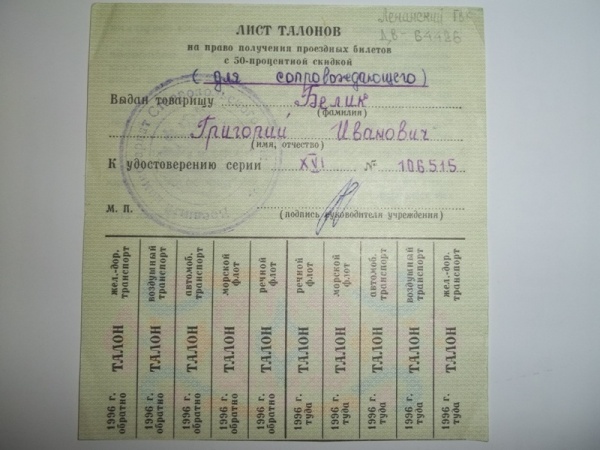 ЛИСТ ТАЛОНОВ
на право получения проездных билетов
с 50-процентной скидкой
(для сопровождающего)
Выдан товарищу Белик
(фамилия)
Григорий Иванович
(имя, отчество)
К удостоверению серии XVI № 106515
М. П.
(подпись руководителя учреждения)
жел.-дор. транспорт ТАЛОН 1996 г. обратно
воздушный транспорт ТАЛОН 1996 г. обратно
автомоб. транспорт ТАЛОН 1996 г. обратно
морской флот ТАЛОН 1996 г. обратно
речной флот ТАЛОН 1996 г. обратно
речной флот ТАЛОН 1996 г. туда
морской флот ТАЛОН 1996 г. туда
автомоб. транспорт ТАЛОН 1996 г. туда
воздушный транспорт ТАЛОН 1996 г. туда
жел.-дор. транспорт ТАЛОН 1996 г. туда